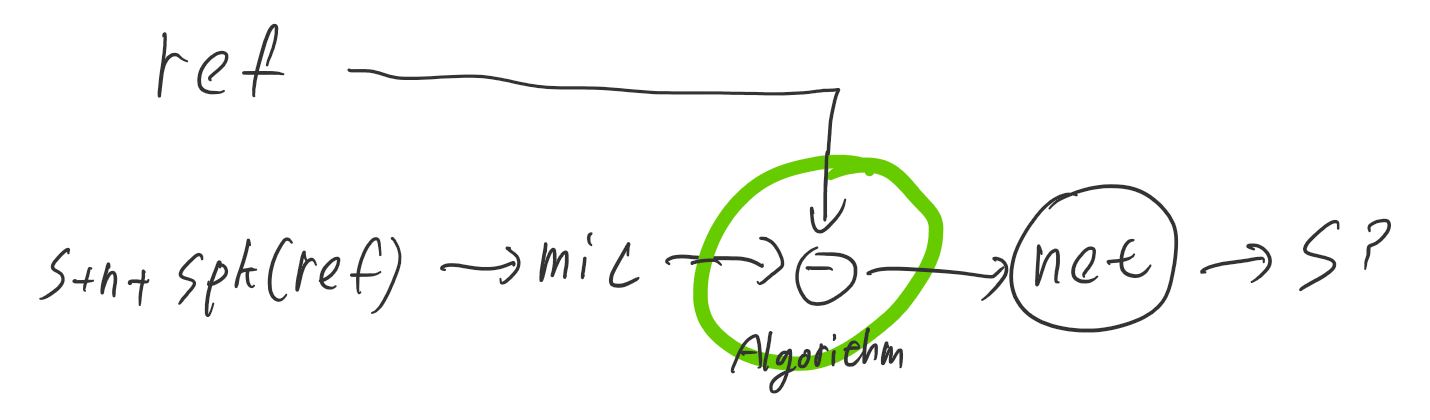 ref
s+n+ spk(ref) → mic → ⊖ → net → s?
Algorithm